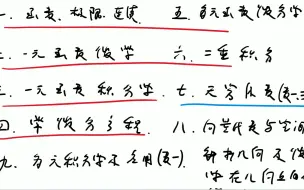 一. 函数、极限、连续 五. 多元函数微分学
二. 一元函数微分学 六. 二重积分
三. 一元函数积分学 七. 无穷级数(数一.三
四. 常微分方程 八. 向量代数与空间
九. 多元积分学及应用(数一)